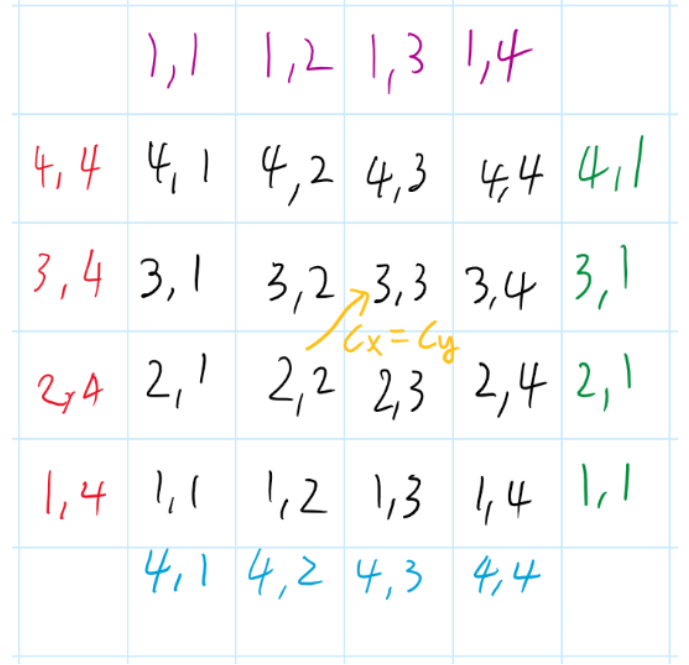 1,1 1,2 1,3 1,4
4,4 4,1 4,2 4,3 4,4 4,1
3,4 3,1 3,2 3,3 3,4 3,1
Cx=Cy
2,4 2,1 2,2 2,3 2,4 2,1
1,4 1,1 1,2 1,3 1,4 1,1
4,1 4,2 4,3 4,4